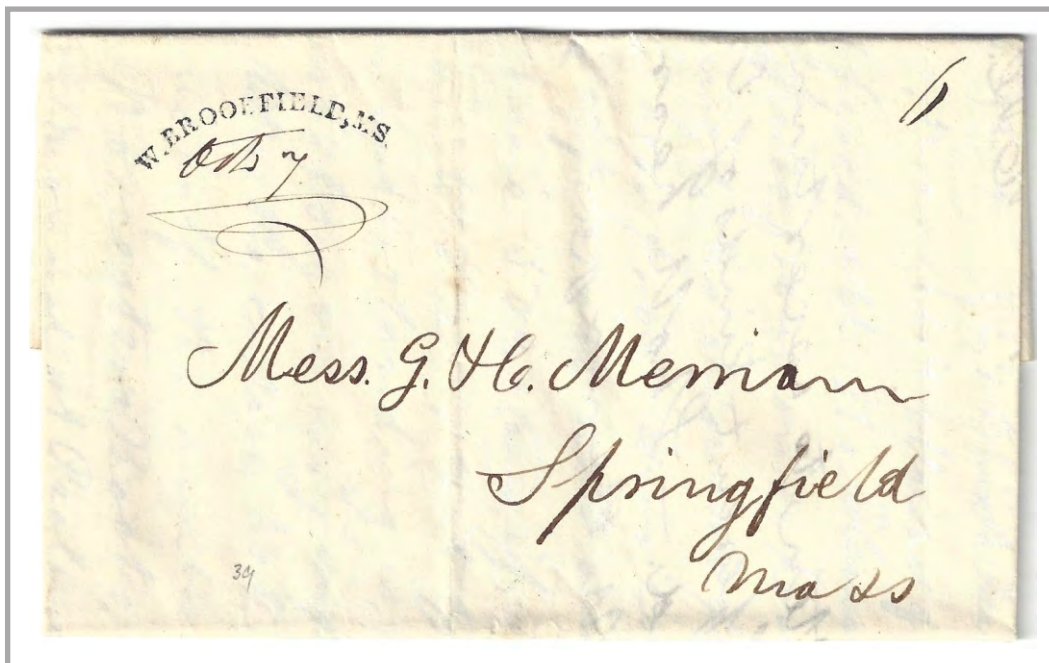 W. BROOKFIELD, MS.
6
Oct 7
Mess. G. & C. Merriam
Springfield
Mass
34